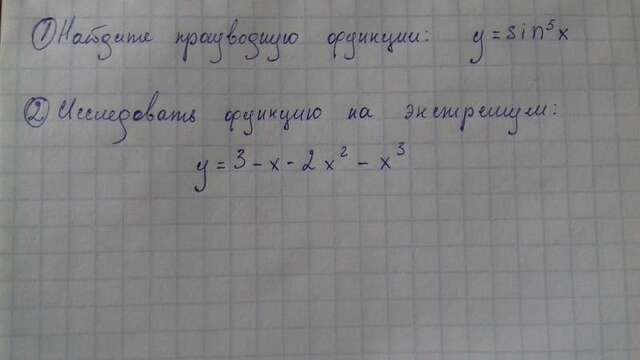 ① Найдите производную функции: y = sin⁵x
② Исследовать функцию на экстремум:
y = 3 - x - 2x² - x³